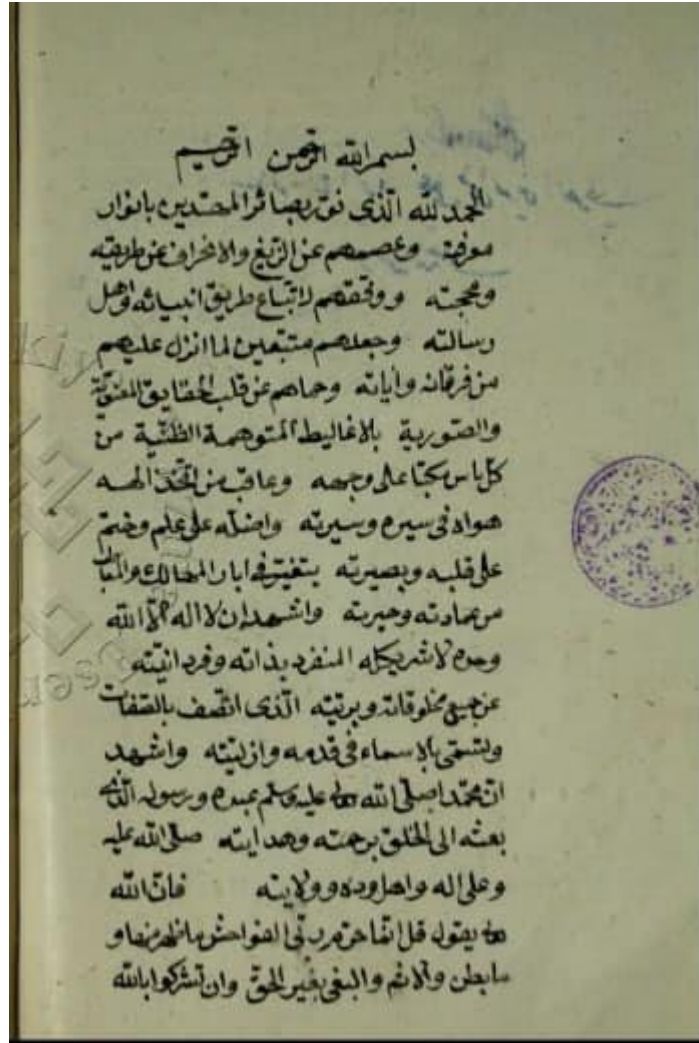 بسم الله الرحمن الرحيم
الحمد لله الذى نور بصائر المهتدين بانوار
معرفته وعصمهم عن الزيغ والانحراف عن طريقه
ومحجته ووفقهم لاتباع طريق انبيائه واهل
رسالته وجعلهم متبعين لما انزل عليهم
من فرقانه واياته وحماهم عن قلب الحقايق المعنوية
والصورية بالاغاليط المتوهمة الظنية من
كل مكبا على وجهه وعاقب من اتخذ الهه
هواه فى سيره وسيرته واضله على علم وختم
على قلبه وبصيرته فى ابار المهالك
من وحيرته واشهد ان لا اله الا الله
وحده لا شريك له المنفرد بذاته وفردانيته
عن جميع مخلوقاته وبريته الذى اتصف بالصفات
وتسمى بالاسماء فى قدمه وازليته واشهد
ان محمدا صلى الله عليه وسلم عبده ورسوله الذى
بعثه الى الخلق برحمته وهدايته صلى الله عليه
وعلى اله واهل وده وولايته فان الله
يقول قل انما حرم ربى الفواحش ما ظهر منها و
ما بطن والاثم والبغى بغير الحق وان تشركوا بالله